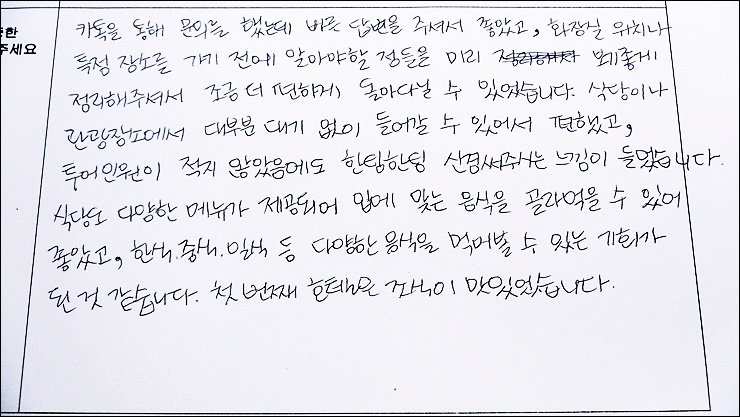 한
주세요
카톡을 통해 문의를 했는데 빠른 답변을 주셔서 좋았고, 화장실 위치나
특정 장소를 가기 전에 알아야할 점들을 미리 보기좋게
정리해주셔서 조금 더 편하게 돌아다닐 수 있었습니다. 식당이나
관광장소에서 대부분 대기 없이 들어갈 수 있어서 편했고,
투어인원이 적지 않았음에도 한팀한팀 신경써주시는 느낌이 들었습니다.
식당도 다양한 메뉴가 제공되어 입에 맞는 음식을 골라먹을 수 있어
좋았고, 한식.중식.일식 등 다양한 음식을 먹어볼 수 있는 기회가
된 것 같습니다. 첫 번째 호텔은 조식이 맛있었습니다.